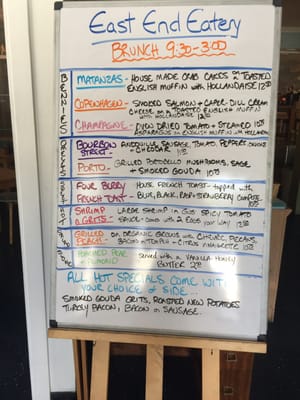 East End Eatery
BRUNCH 9:30-3:00
BENNIES
MATANZAS - HOUSE MADE CRAB CAKES ON A TOASTED
ENGLISH MUFFIN WITH HOLLANDAISE
COPENHAGEN - SMOKED SALMON + CAPER-DILL CREAM
CHEESE ON A TOASTED ENGLISH MUFFIN
WITH HOLLANDAISE
CHAMPAGNE - OVEN DRIED TOMATO + STEAMED
ASPARAGUS ON ENGLISH MUFFIN WITH HOLLANDAISE
BOURBON STREET - ANDOUILLE SAUSAGE, TOMATO, PEPPERS, ONIONS
+ CHEDDAR
PORTO - GRILLED PORTOBELLO MUSHROOMS, SAGE
+ SMOKED GOUDA
FOUR BERRY FRENCH TOAST - HOUSE FRENCH TOAST topped with
BLUE, BLACK, RASP + STRAWBERRY COMPOTE
SHRIMP n GRITS - LARGE SHRIMP in OUR SPICY TOMATO
SAUCE - COMES WITH 2 EGGS YOUR WAY
GRILLED PEACH - ON ORGANIC GREENS with CHEVRE, PECANS,
BACON + CITRUS VINAIGRETTE
POACHED PEAR served with a VANILLA HONEY
BUTTER
ALL HOT SPECIALS COME WITH
YOUR CHOICE of SIDE...
SMOKED GOUDA GRITS, ROASTED NEW POTATOES
TURKEY BACON, BACON or SAUSAGE.